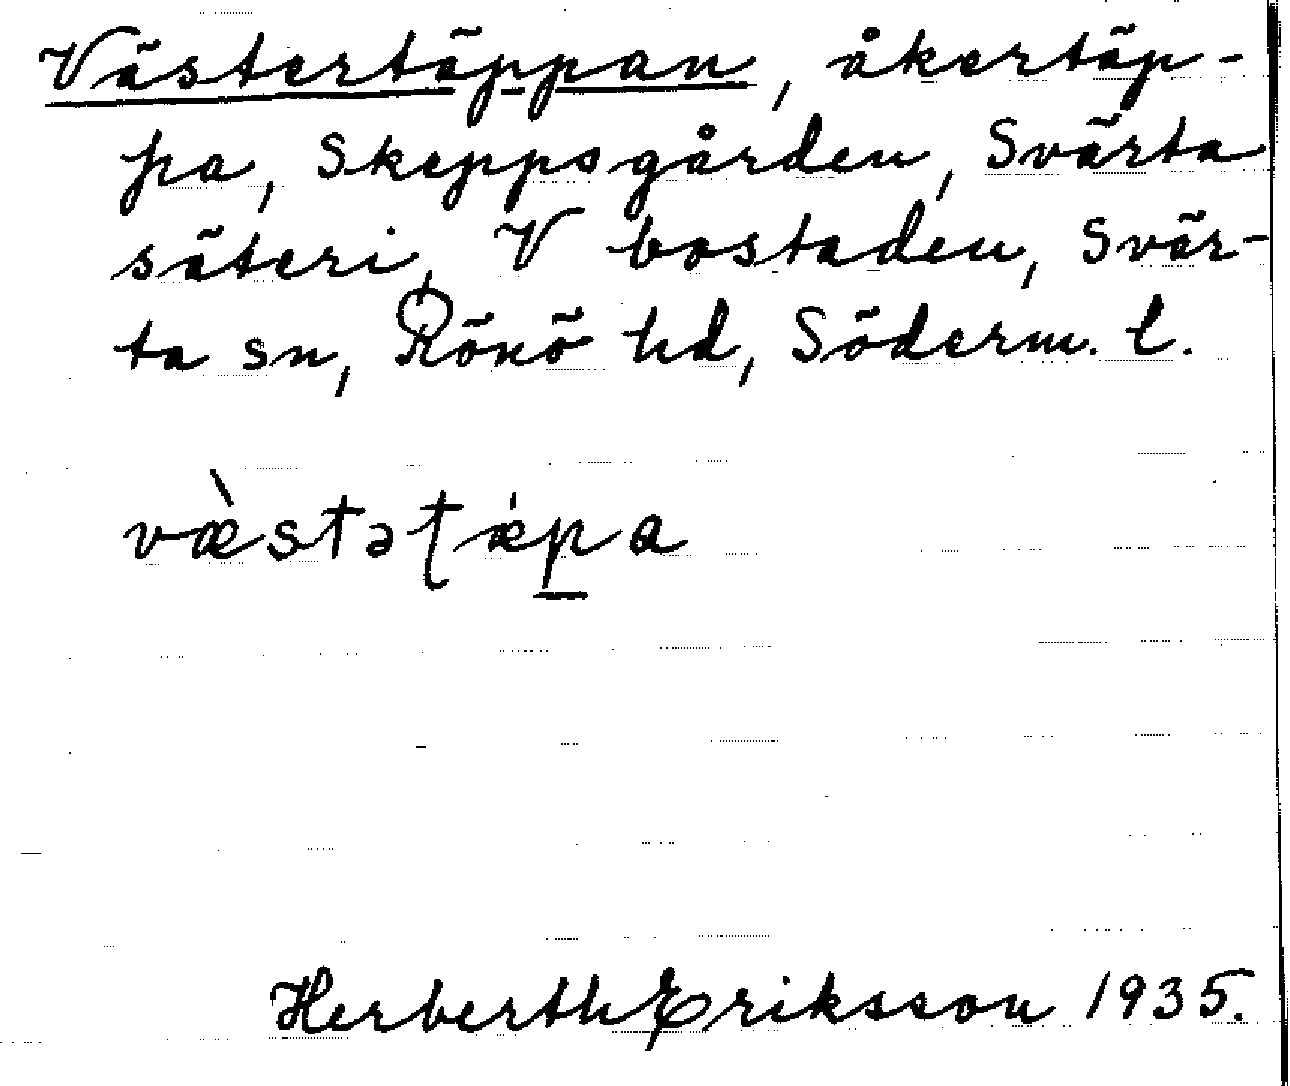 Västertäppan, åkertäp-
pa, Skeppsgården, Svärta
säteri, V bostaden, Svär-
ta sn, Rönö hd, Söderm. l.
væ̀stəʈæ̍p̲a
Herberth Eriksson 1935.